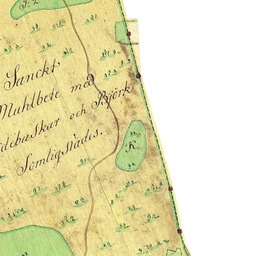 Sanckt
Muhlbete med
buskar och Björk
Somligstädes.
K.